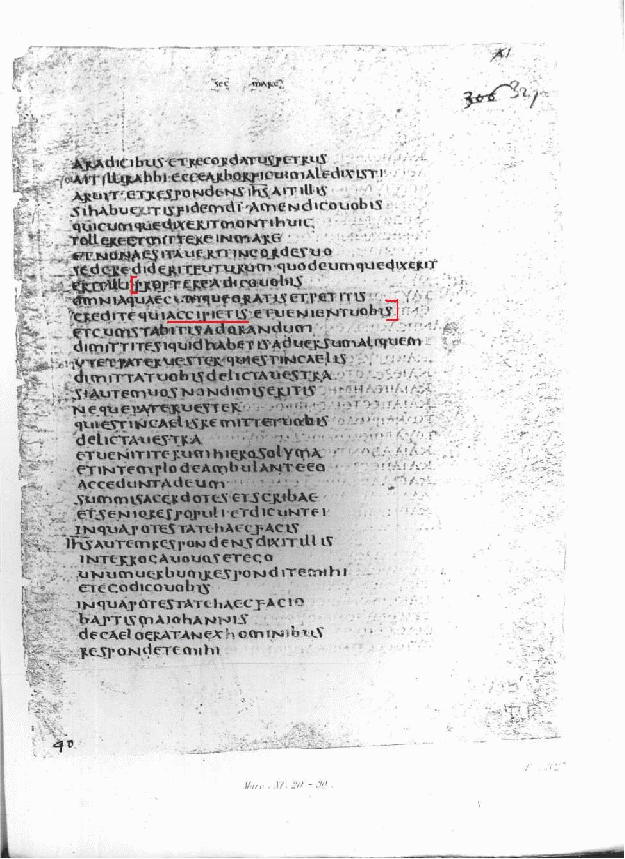 XI
SEC MARC
306 321
ARADICIBUS·ETRECORDATUSPETRUS
AITILLIRABBI·ECCEARBORFICICUIMALEDIXISTI
ARUIT·ETRESPONDENSIHSAITILLIS
SIHABUERITISFIDEMDI·AMENDICOUOBIS
QUICUMQUEDIXERITMONTIHUIC
TOLLEREETMITTEREINMARE
ETNONAESITAUERITINCORDESUO
SEDCREDIDERITFUTURUM·QUODCUMQUEDIXERIT
ERITILLI PROPTEREADICOUOBIS
OMNIAQUAECUMQUEORATISETPETITIS
CREDITEQUIACCIPIETIS·ETUENIENTUOBIS
ETCUMSTABITISADORANDUM
DIMITTITESIQUIDHABETISADUERSUMALIQUEM
UTETPATERUESTER·QUIESTINCAELIS
DIMITTATUOBISDELICTAUESTRA
SIAUTEMUOSNONDIMISERITIS
NEQUEPATERUESTER
QUIESTINCAELISREMITTETUOBIS
DELICTAUESTRA
ETUENITITERUMHIEROSOLYMA
ETINTEMPLODEAMBULANTEEO
ACCEDUNTADEUM
SUMMISACERDOTES·ETSCRIBAE
ETSENIORESPOPULI·ETDICUNTEI
INQUAPOTESTATEHAECFACIS
IHSAUTEMRESPONDENSDIXITILLIS
INTERROGABOUOSETEGO
UNUMUERBUMRESPONDITEMIHI
ETEGODICOUOBIS
INQUAPOTESTATEHAECFACIO
BAPTISMAIOHANNIS
DECAELOERATANEXHOMINIBUS
RESPONDETEMIHI
40
Marc. XI. 20 - 30.